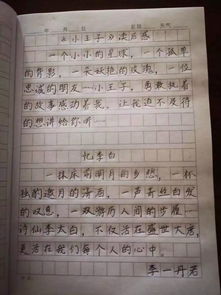 年 月 日 星期 天气
《小王子》读后感
一个小小的星球，一个孤单
的背影，一朵妖艳的玫瑰，一位
忠诚的朋友—小王子，勇敢执着
的故事感动着我，让我迫不及待
的想讲给你听…
忆李白
一抹床前明月的乡愁，一杯
独酌邀月的清酒，一声青丝白发
的叹息，一双游历人间的步履…
诗仙李太白，不仅活在盛世大唐，
更活在我们每个人的心中。
李一丹若